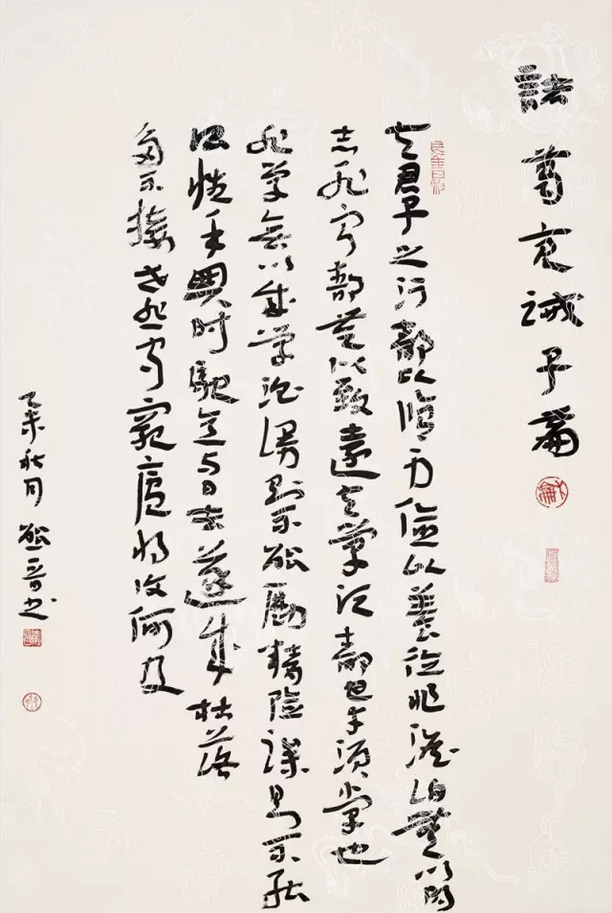 諸葛亮誡子篇
夫君子之行靜以脩身儉以養德非澹泊無以明
志非寧靜無以致遠夫學須靜也才須學也
非學無以成學滔慢則不能勵精險躁則不能
治性年與時馳意与日去遂成枯落
多不接世悲守窮廬將復何及
乙未秋月 書